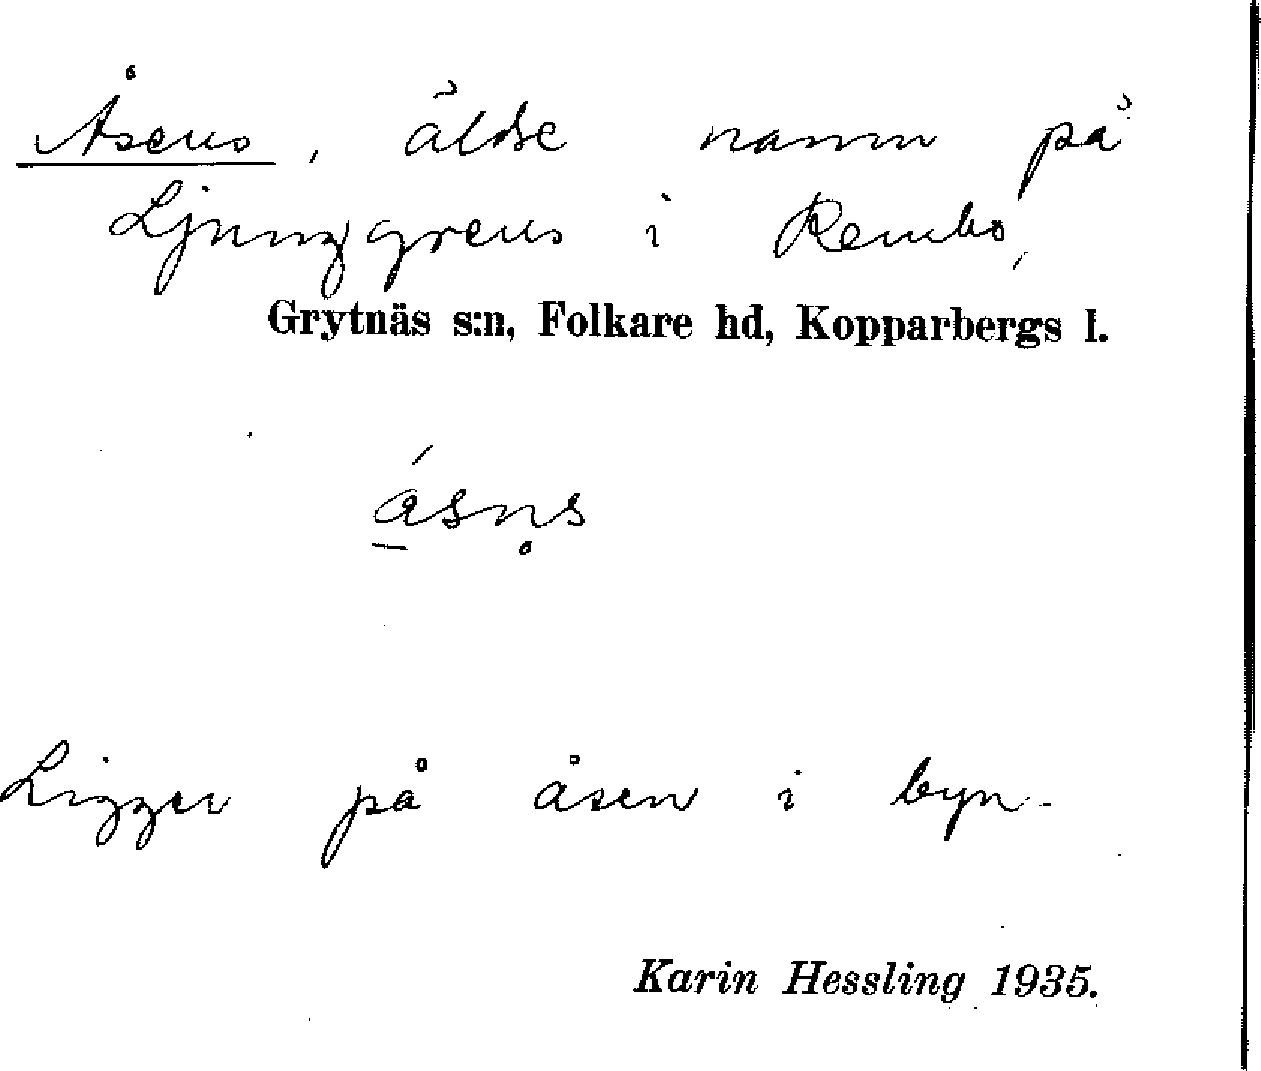 Åsens, äldre namn på
Ljunggrens i Rembo,
Grytnäs s:n, Folkare hd, Kopparbergs l.
ásn̥s
Ligger på åsen i byn.
Karin Hessling 1935.